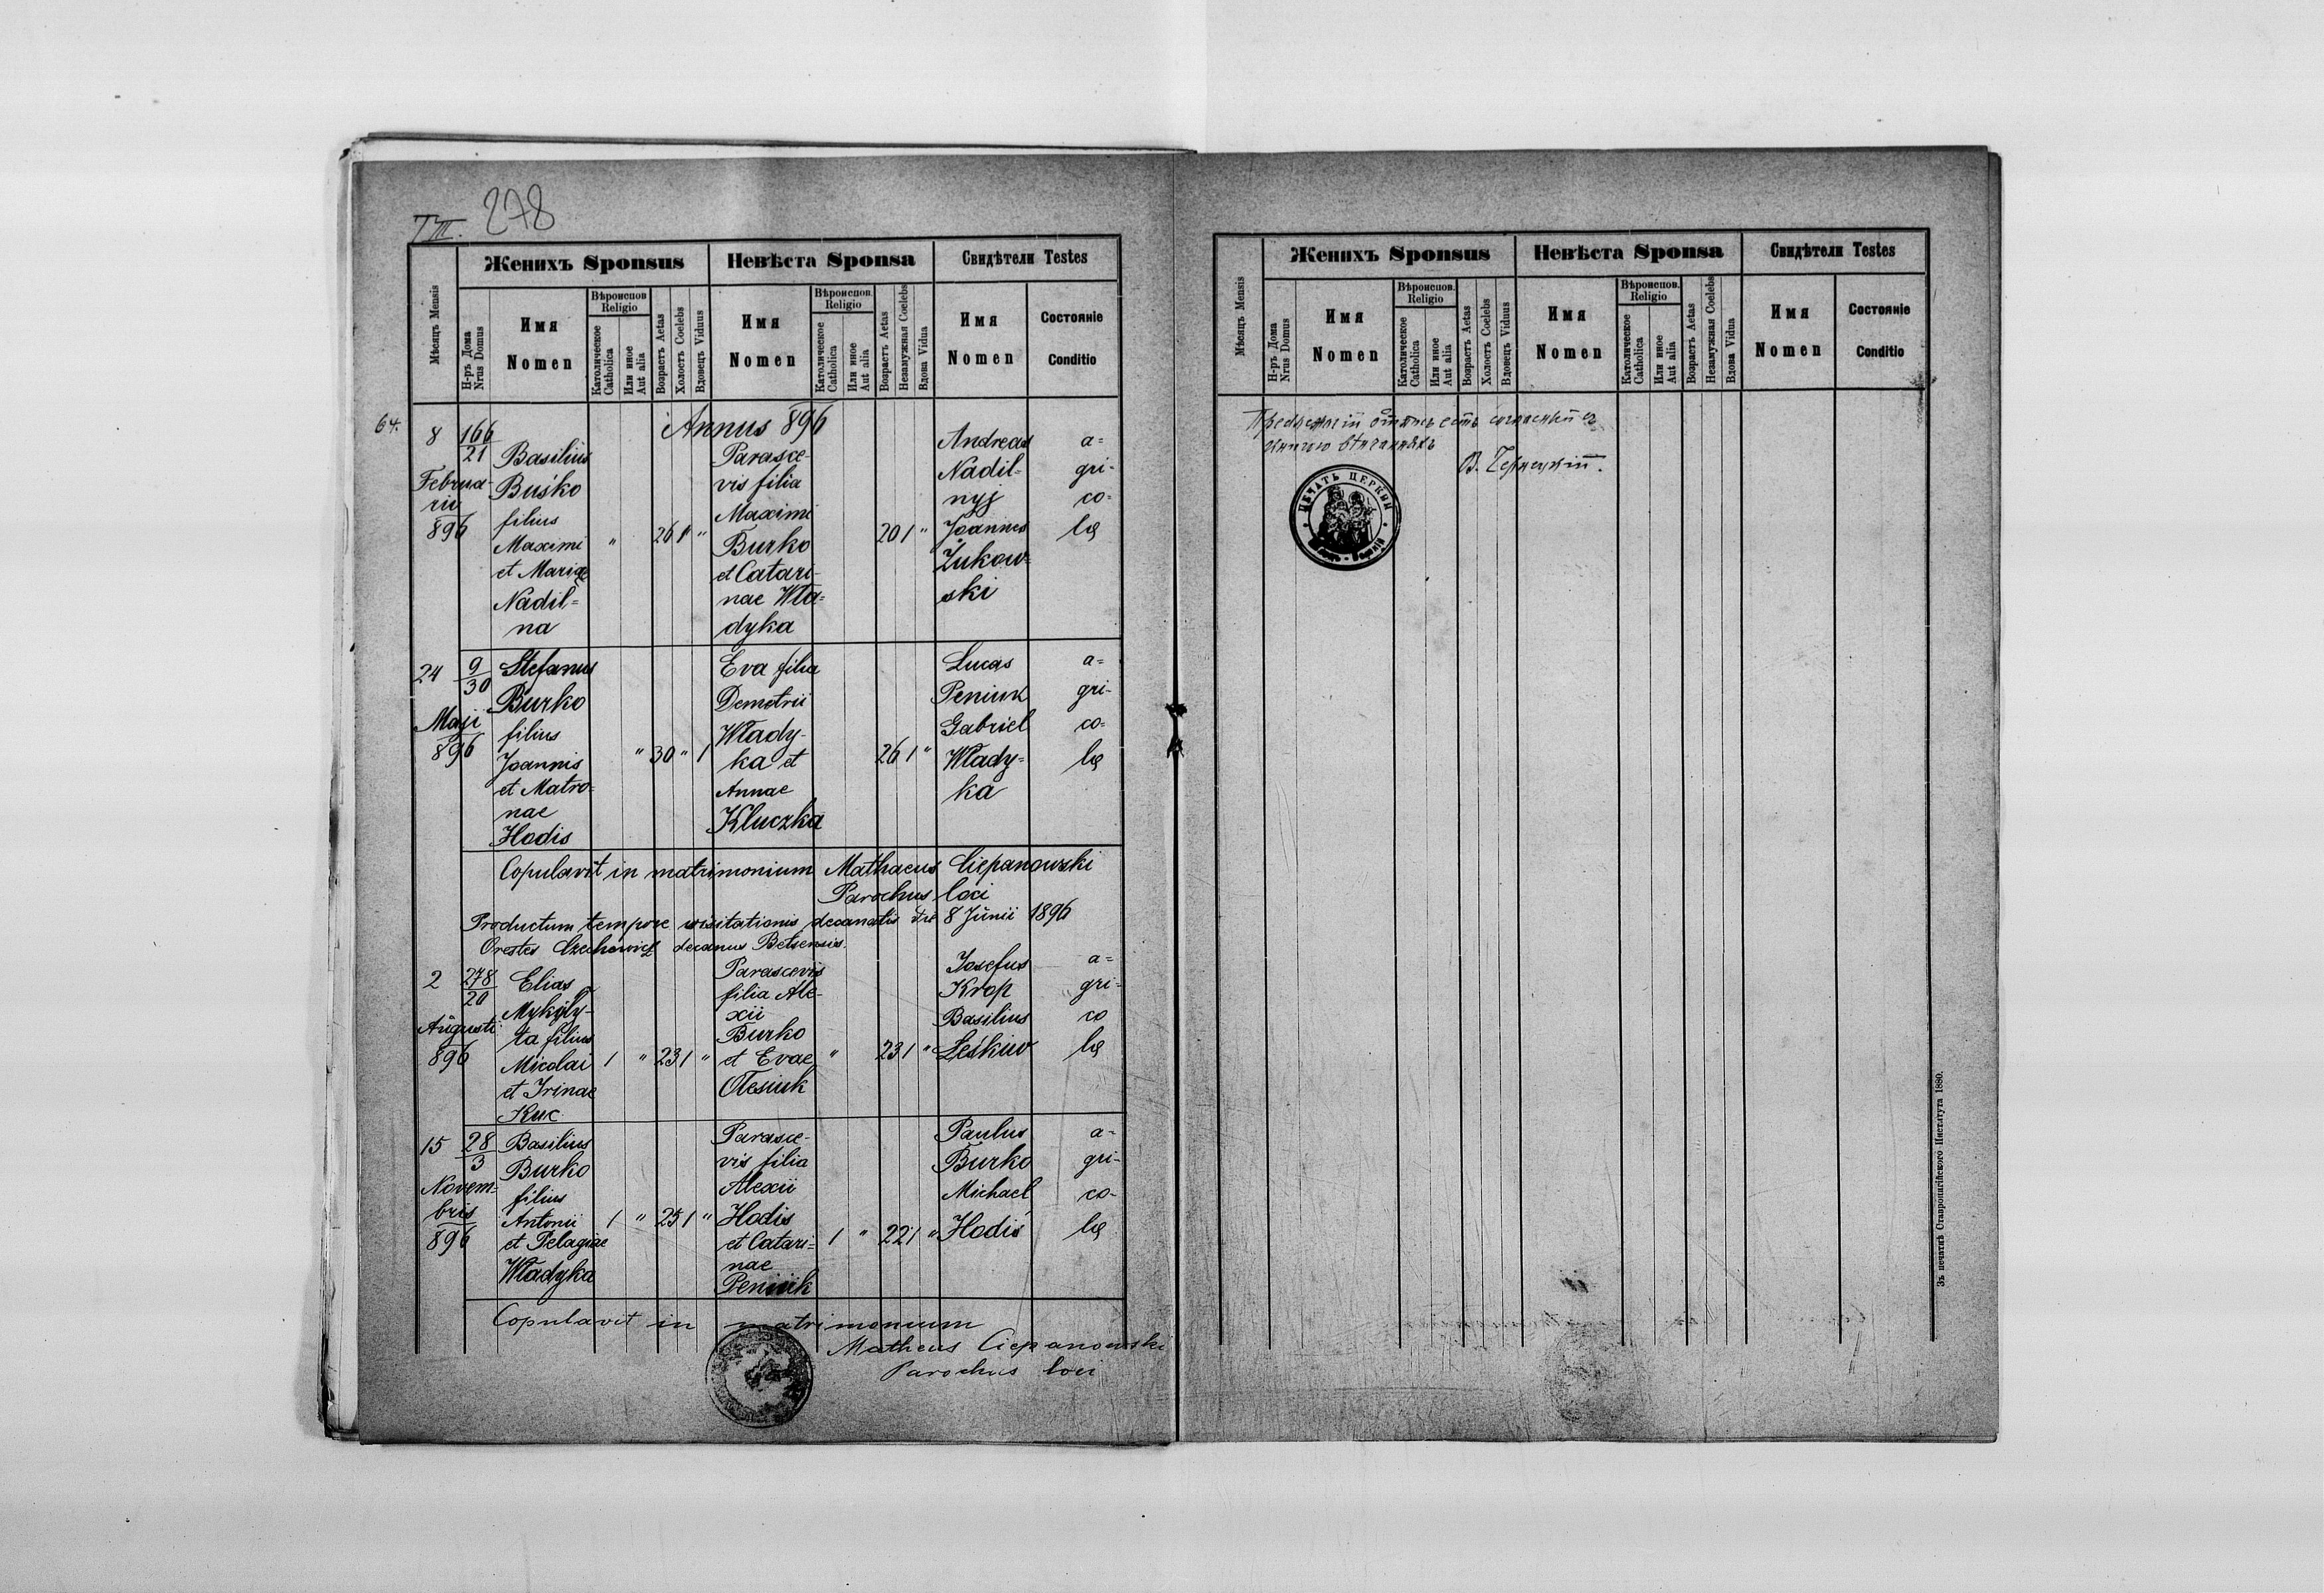 278
TIII.
Женихъ Sponsus
Невѣста Sponsa
Свидѣтели Testes
Мѣсяцъ Mensis
Н-ръ Дома
Nrus Domus
Имя
Nomen
Вѣроиспов.
Religio
Католическое
Catholica
Или иное
Aut alia
Возрастъ Aetas
Холостъ Coelebs
Вдовецъ Viduus
Имя
Nomen
Вѣроиспов.
Religio
Католическое
Catholica
Или иное
Aut alia
Возрастъ Aetas
Незамужная Coelebs
Вдова Vidua
Имя
Nomen
Состояніе
Conditio
64.
Annus 896
8
Februa-
rii
896
166
21
Basilius
Buśko
filius
Maximi
et Mariae
Nadil=
na
" 26 1 "
Parasce-
vis filia
Maximi
Burko
et Catari-
nae Wła=
dyka
20 1 "
Andreas
Nadil-
nyj
Joannes
Żukow=
ski
a=
gri-
co=
lae
24
Maji
896
9
30
Stefanus
Burko
filius
Joannis
et Matro=
nae
Hodis
" 30 " 1
Eva filia
Demetrii
Włady-
ka et
Annae
Kluczka
26 1 "
Lucas
Peniuk
Gabriel
Włady=
ka
a=
gri-
co=
lae
Copulavit in matrimonium Mathaeus Ciepanowski
Parochus loci
Productum tempore visitationis decanalis die 8 Junii 1896
Orestes Czechowicz decanus Betsensis.
2
Augusti
896
278
20
Elias
Mykyty-
ta filius
Micolai
et Irinae
Kuc
1 " 23 1 "
Parascevis
filia Ale-
xii
Burko
et Evae
Olesiuk
" 23 1 "
Josefus
Krop
Basilius
Leśkuw
a=
gri-
co
lae
15
Novem=
bris
896
28
3
Basilius
Burko
filius
Antonii
et Pelagiae
Władyka
1 " 25 1 "
Parasce-
vis filia
Alexii
Hodis
et Catari=
nae
Peniuk
1 " 22 1 "
Paulus
Burko
Michael
Hodiś
a-
gri-
co-
lae
Copulavit in matrimonium
Matheus Ciepanowski
Parochus loci
Женихъ Sponsus
Невѣста Sponsa
Свидѣтели Testes
Мѣсяцъ Mensis
Н-ръ Дома
Nrus Domus
Имя
Nomen
Вѣроиспов.
Religio
Католическое
Catholica
Или иное
Aut alia
Возрастъ Aetas
Холостъ Coelebs
Вдовецъ Viduus
Имя
Nomen
Вѣроиспов.
Religio
Католическое
Catholica
Или иное
Aut alia
Возрастъ Aetas
Незамужная Coelebs
Вдова Vidua
Имя
Nomen
Состояніе
Conditio
отпись есть согласный съ
книгою вѣнчанныхъ
В. Чернецкій.
ПЕЧАТЬ ЦЕРКВИ
Зъ печатнѣ Ставропигійского Института 1880.